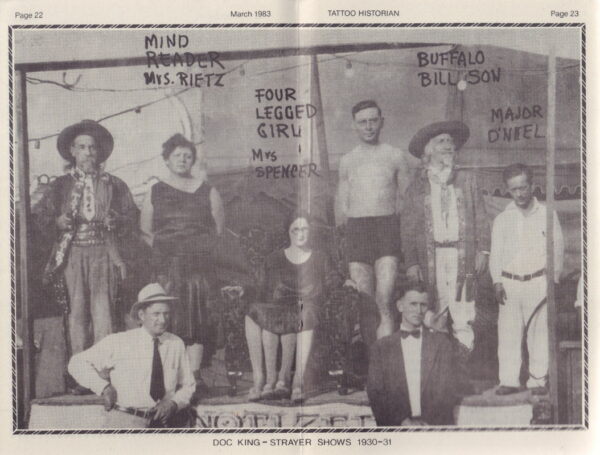 Page 22 March 1983 TATTOO HISTORIAN Page 23
MIND
READER
Mrs. RIETZ
FOUR
LEGGED
GIRL
Mrs
SPENCER
BUFFALO
BILL SON
MAJOR
O'NEEL
DOC KING – STRAYER SHOWS 1930-31